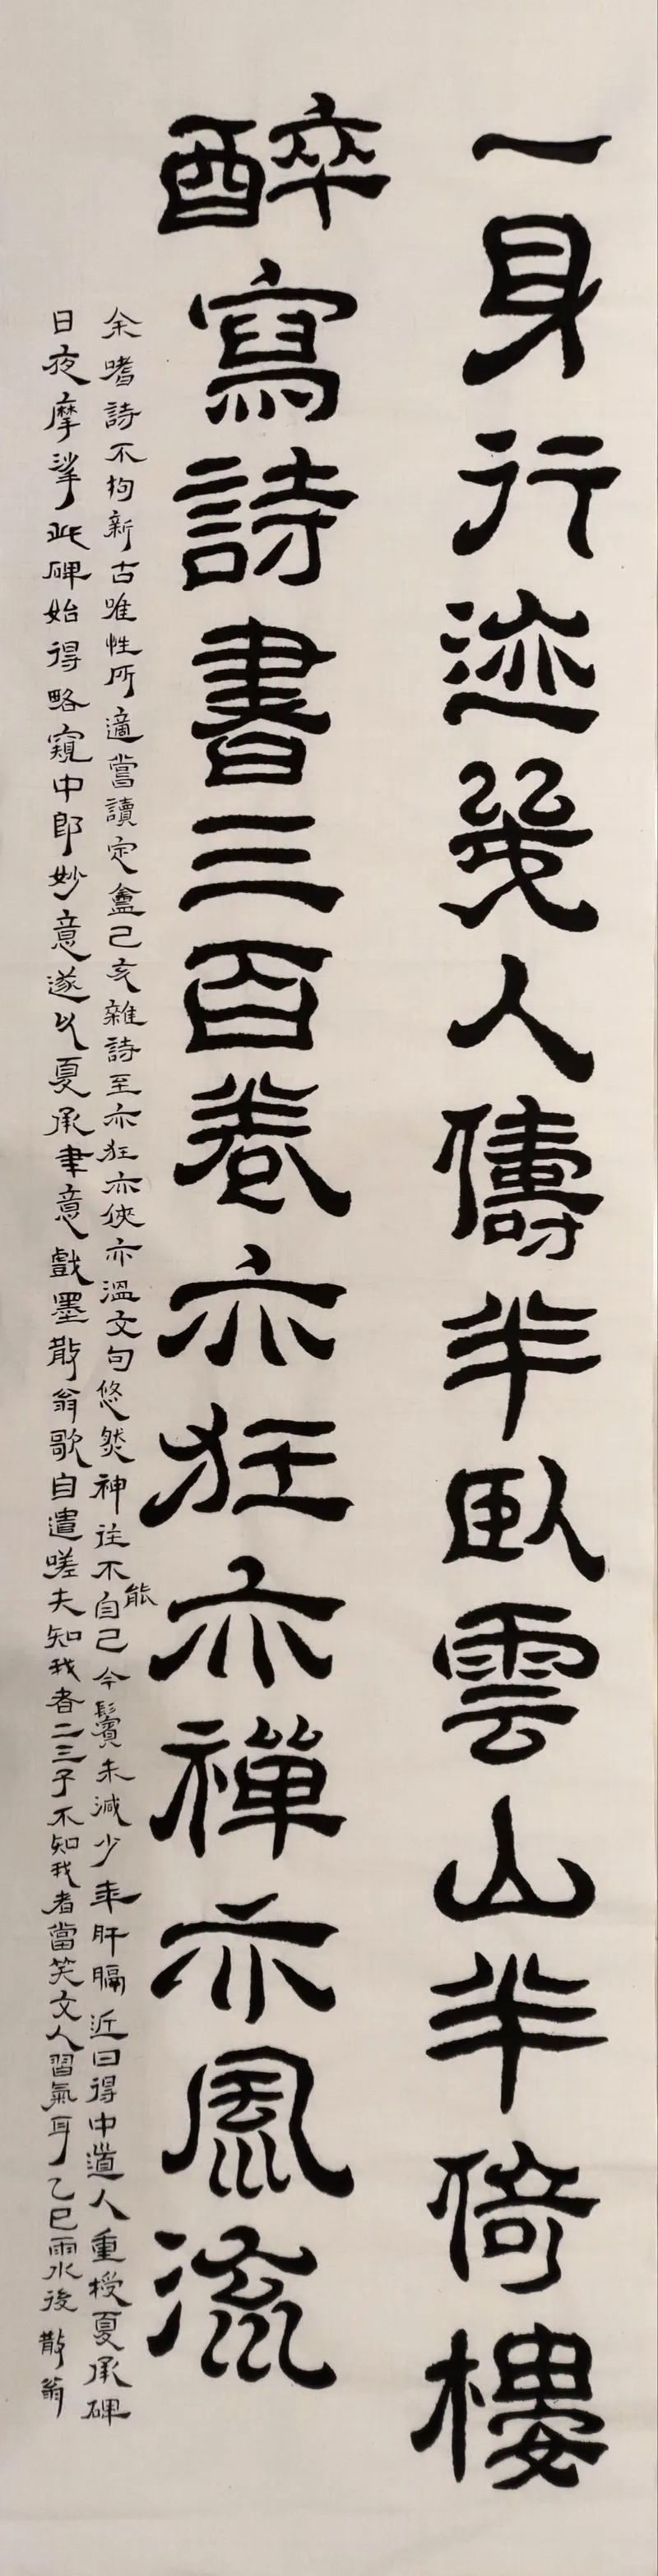 一身行迹幾人儔半臥雲山半倚樓
醉寫詩書三百卷亦狂亦禪亦風流
余嗜詩不拘新古唯性所適嘗讀定盦己亥雜詩至亦狂亦俠亦溫文句悠然神往不能自己今鬢未減少年肝膈近日得中道人重授夏承碑
日夜摩挲此碑始得略窺中郎妙意遂以夏承聿意戲墨散翁歌自遣嗟夫知我者二三子不知我者當笑文人習氣耳乙巳雨水後 散翁